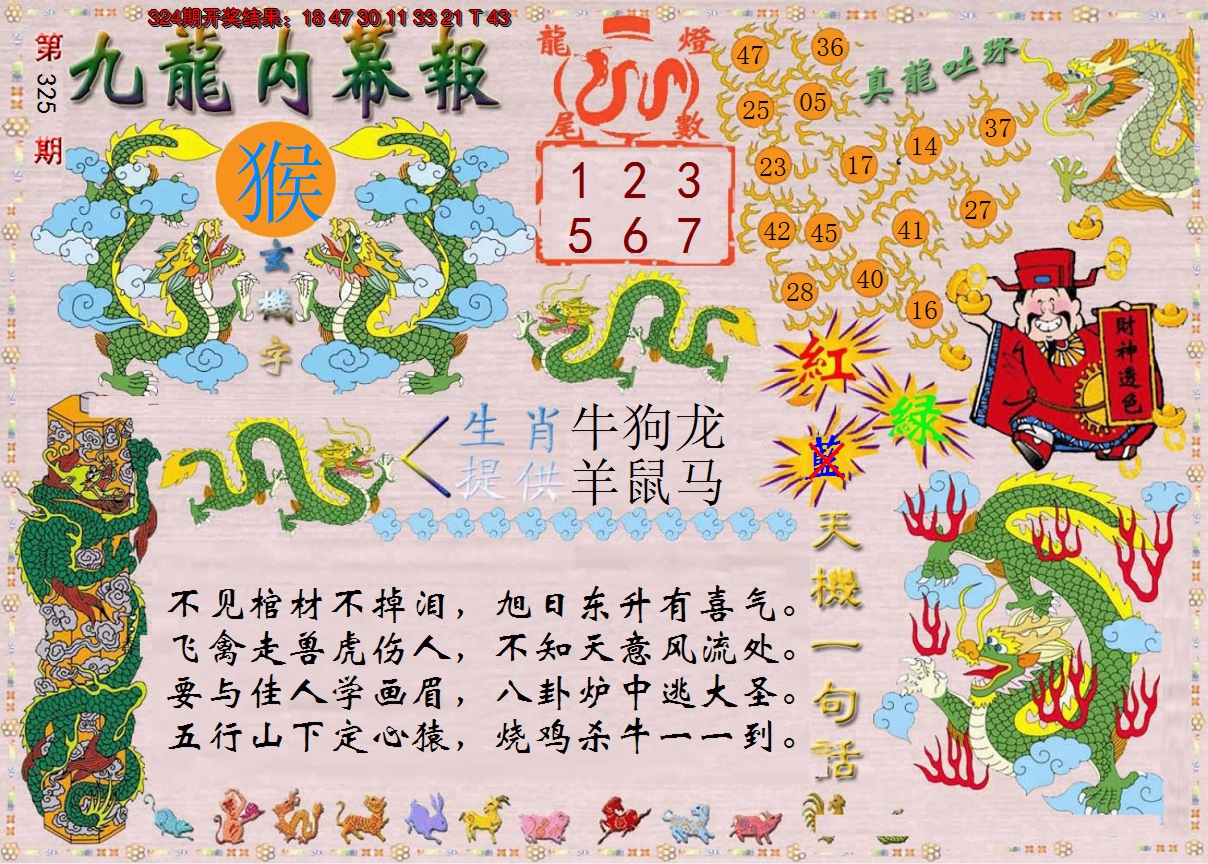 324期开奖结果：18 47 30 11 33 21 T 43
第325期
九龍内幕報
猴
玄機字
龍燈尾數
1 2 3
5 6 7
真龍吐珠
47 36
25 05
37
14
23 17
27
42 45 41
40
28
16
財神透色
紅
綠
藍
生肖提供
牛狗龙
羊鼠马
天機一句话
不见棺材不掉泪，旭日东升有喜气。
飞禽走兽虎伤人，不知天意风流处。
要与佳人学画眉，八卦炉中逃大圣。
五行山下定心猿，烧鸡杀牛一一到。